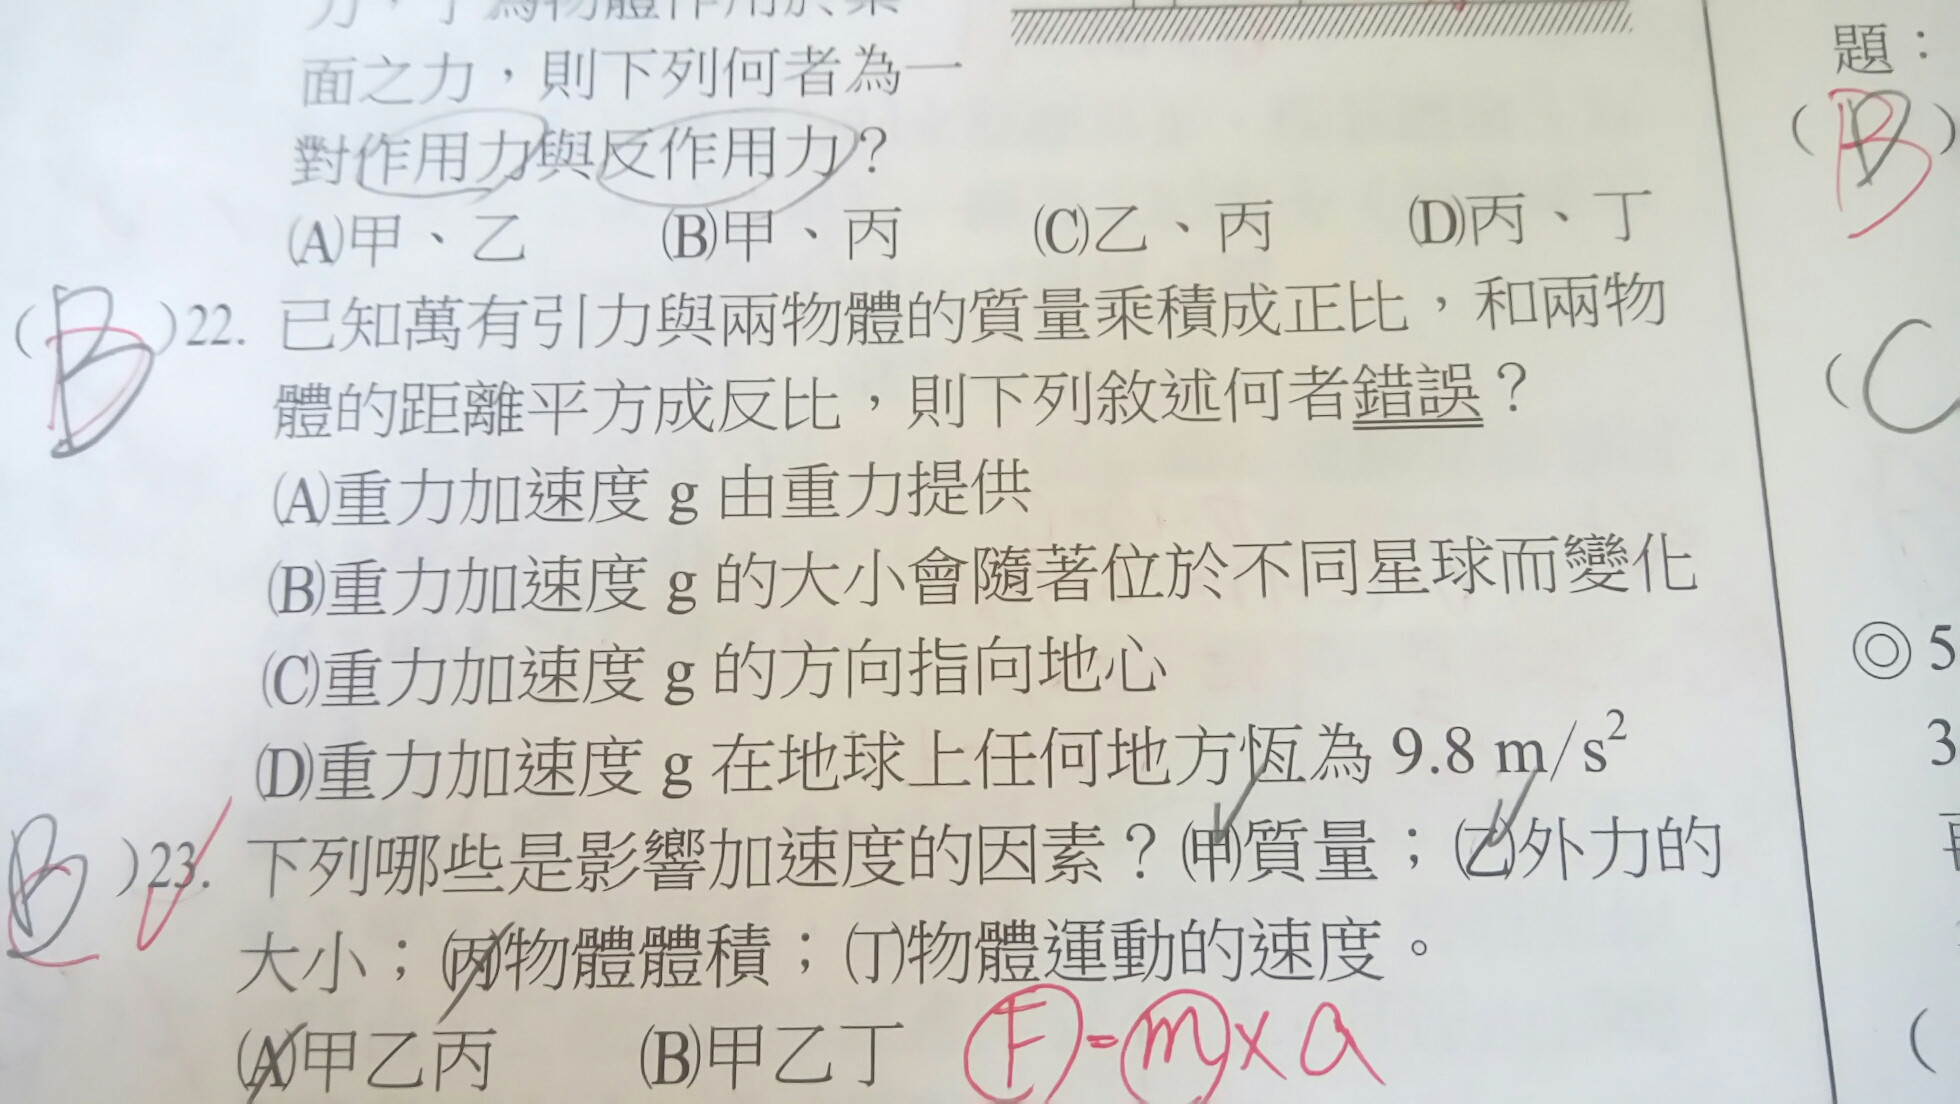 面之力，則下列何者為一
對作用力與反作用力？
(A)甲、乙 (B)甲、丙 (C)乙、丙 (D)丙、丁
(B)22. 已知萬有引力與兩物體的質量乘積成正比，和兩物
體的距離平方成反比，則下列敘述何者錯誤？
(A)重力加速度 g 由重力提供
(B)重力加速度 g 的大小會隨著位於不同星球而變化
(C)重力加速度 g 的方向指向地心
(D)重力加速度 g 在地球上任何地方恆為 9.8 m/s²
B)23. 下列哪些是影響加速度的因素？(甲)質量；(乙)外力的
大小；(丙)物體體積；(丁)物體運動的速度。
(A)甲乙丙 (B)甲乙丁 F=m×a
題：
(B)
(C
◎5
3
(